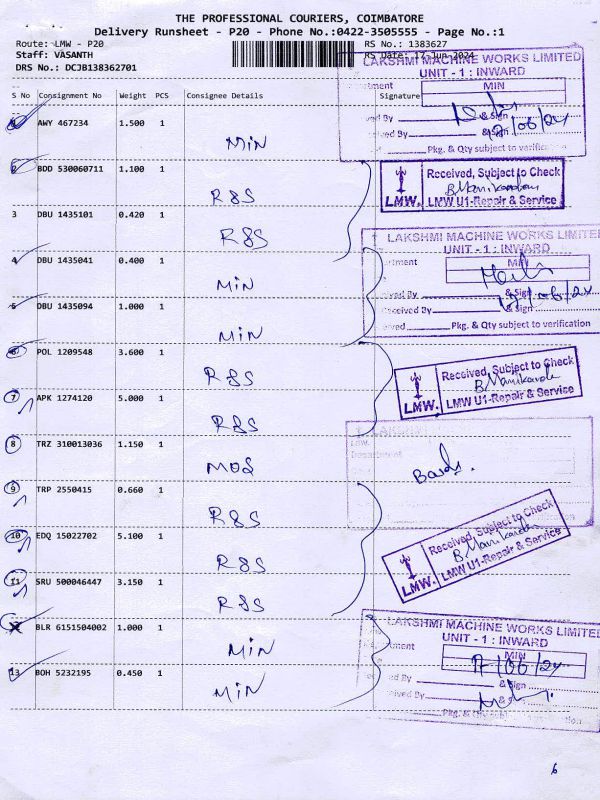 THE PROFESSIONAL COURIERS, COIMBATORE
Delivery Runsheet - P20 - Phone No.:0422-3505555 - Page No.:1
Route: LMW - P20
RS No.: 1383627
Staff: VASANTH
RS Date: 17-Jun-2024
DRS No.: DCJB138362701
S No Consignment No Weight PCS Consignee Details Signature
AWY 467234 1.500 1 MIN
2 BDD 530060711 1.100 1 R&S
3 DBU 1435101 0.420 1 R&S
4 DBU 1435041 0.400 1 MIN
5 DBU 1435094 1.000 1 MIN
6 POL 1209548 3.600 1 R&S
7 APK 1274120 5.000 1 R&S
8 TRZ 310013036 1.150 1 MOS
9 TRP 2550415 0.660 1 R&S
10 EDQ 15022702 5.100 1 R&S
11 SRU 500046447 3.150 1 R&S
BLR 6151504002 1.000 1 MIN
13 BOH 5232195 0.450 1 MIN
LAKSHMI MACHINE WORKS LIMITED
UNIT - 1 : INWARD
MIN
& Sign
17/06/24
Pkg. & Qty subject to verification
Received, Subject to Check
B. Manikandan
LMW. LMW U1-Repair & Service
LAKSHMI MACHINE WORKS LIMITED
UNIT - 1 : INWARD
MIN
& Sign
17/06/24
Pkg. & Qty subject to verification
Received, Subject to Check
LMW. LMW U1-Repair & Service
Received, Subject to Check
LMW. LMW U1-Repair & Service
LAKSHMI MACHINE WORKS LIMITED
UNIT - 1 : INWARD
MIN
17/06/24
& Sign
Pkg. & Qty subject to verification
6